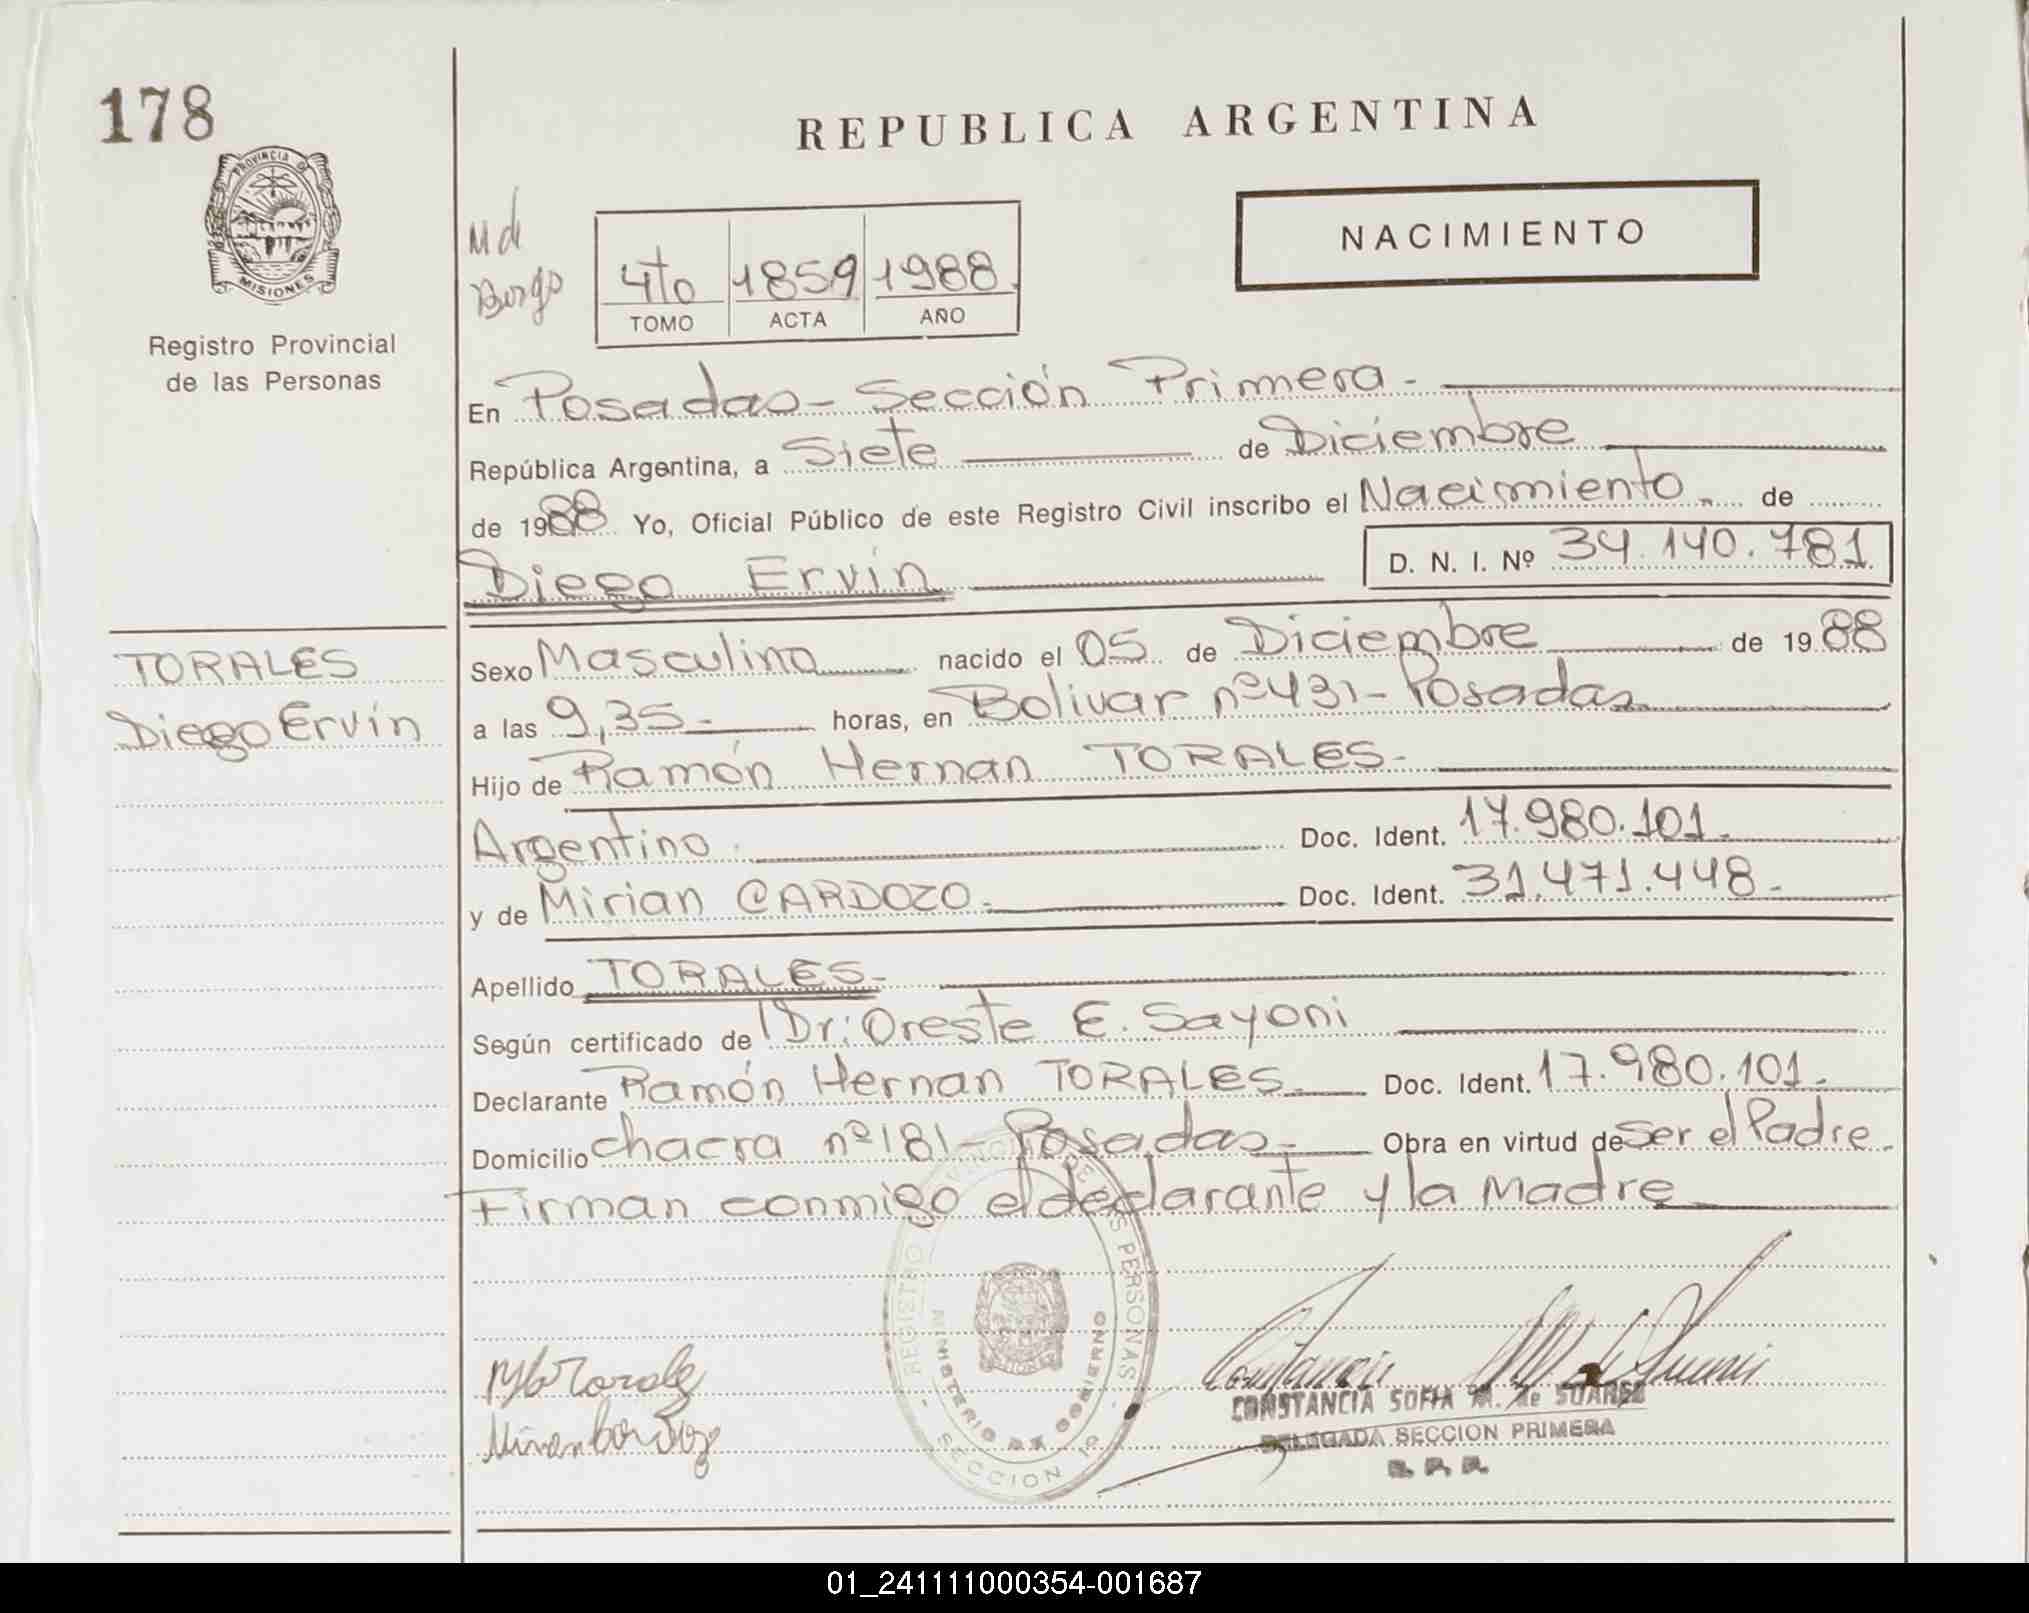 178
PROVINCIA DE
MISIONES
Registro Provincial
de las Personas
REPUBLICA ARGENTINA
NACIMIENTO
4to 1859 1988
TOMO ACTA AÑO
En Posadas - Sección Primera -
República Argentina, a Siete de Diciembre
de 1988 Yo, Oficial Público de este Registro Civil inscribo el Nacimiento de
Diego Ervin D. N. I. Nº 34.140.781
TORALES
Diego Ervin
Sexo Masculino nacido el 05 de Diciembre de 1988
a las 9,35 - horas, en Bolivar nº 431 - Posadas
Hijo de Ramón Hernan TORALES -
Argentino Doc. Ident. 17.980.101 -
y de Mirian CARDOZO - Doc. Ident. 31.471.448 -
Apellido TORALES -
Según certificado de Dr: Oreste E. Sayoni
Declarante Ramón Hernan TORALES - Doc. Ident. 17.980.101 -
Domicilio chacra nº 181 - Posadas - Obra en virtud de Ser el Padre -
Firman conmigo el declarante y la Madre
REGISTRO PROVINCIAL DE LAS PERSONAS
MINISTERIO DE GOBIERNO
SECCION 1º
CONSTANCIA SOFIA M. de SUAREZ
DELEGADA SECCION PRIMERA
R. P. P.
01_241111000354-001687